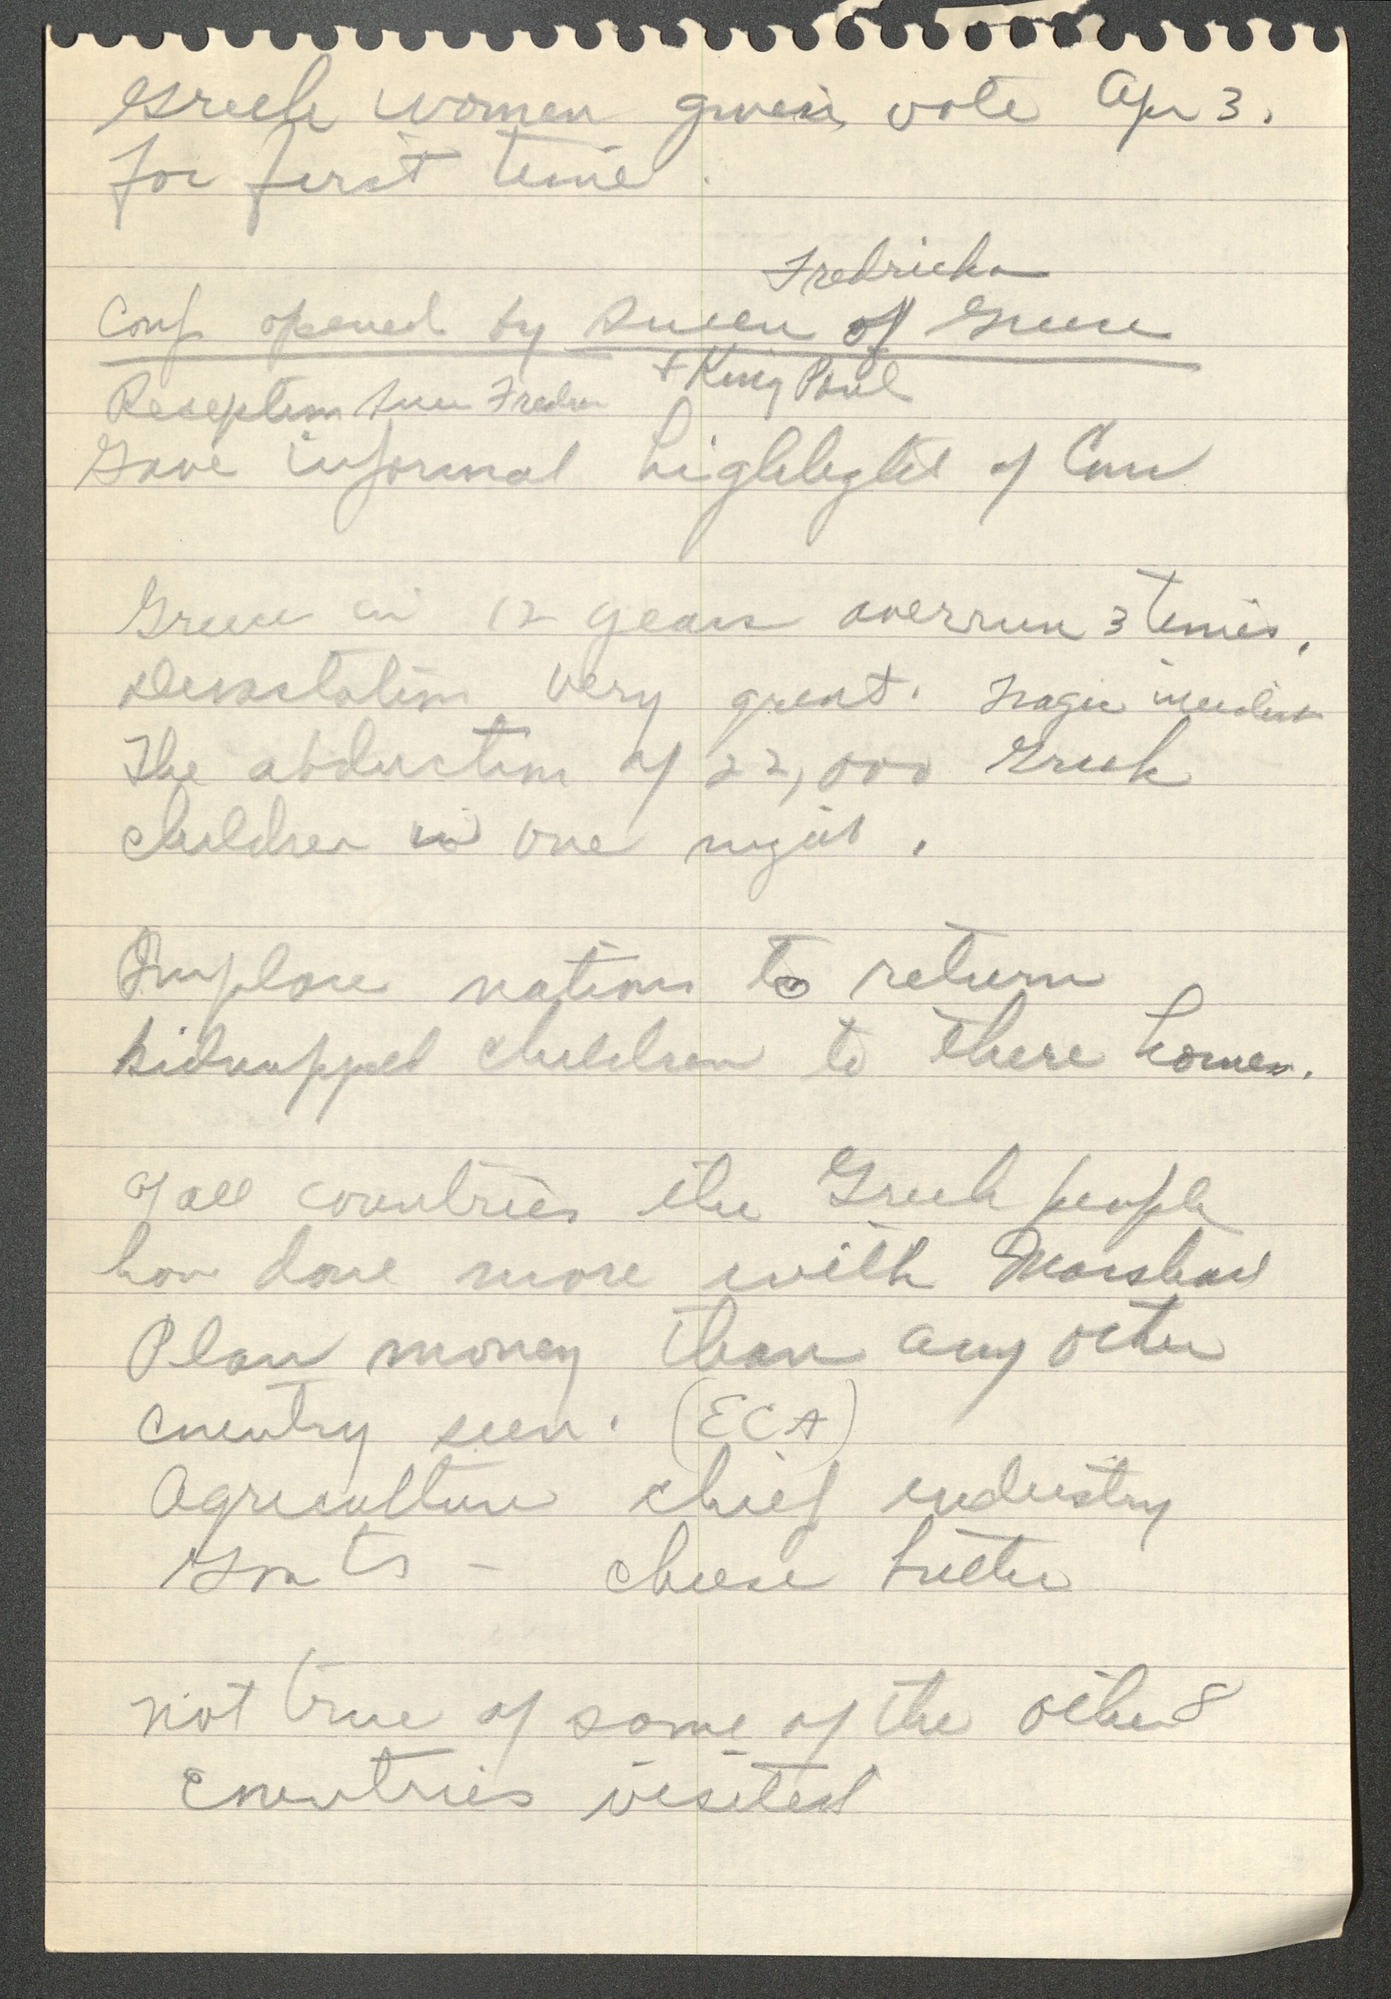 Greek women given vote Apr 3.
for first time.
Fredricka
Conf opened by Queen of Greece
+ King Paul
Reception Queen
Gave informal highlights of
Greece in 12 years overrun 3 times.
Devastation very great. Tragic incident
The abduction of 22,000 Greek
children in one night.
Implore nations to return
kidnapped children to there homes.
Of all countries the Greek people
have done more with Marshall
Plan money than any other
country seen. (ECA)
Agriculture chief industry
Goats - cheese butter
not true of some of the other 8
countries visited